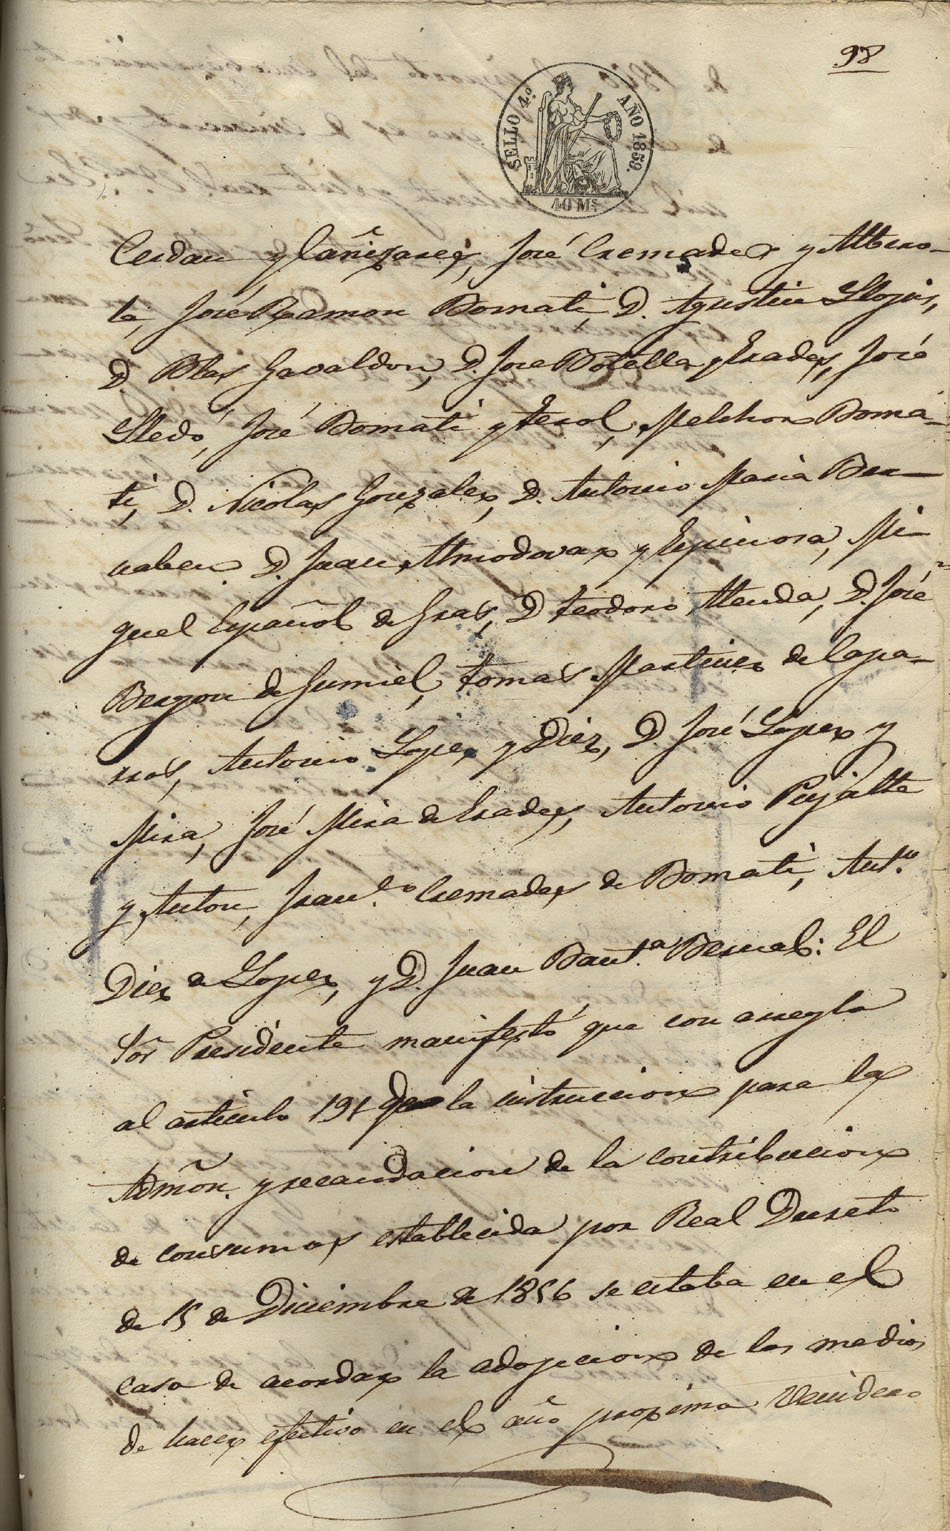 98
SELLO 4.º AÑO 1859.
40 Ms
Cerdan y Cañizares, José Cremades y Albero-
la, José Ramon Domati, D. Agustin Llopis,
D Blas Gavaldon, D. Jose Botella y Prades, José
Lledó, José Domati y Terol, Melchor Doma-
ti, D. Nicolas Gonzalez, D. Antonio Maria Ber-
nabeu D. Juan Almodovar y Espinosa, Mi-
guel Español de Gras, D Teodoro Alenda, D. José
Beryon de Gumiel, Tomas Martinez de Capa-
rros, Antonio Lopez y Diez, D José Lopez y
Mira, José Mira de Prades, Antonio Pujalte
y Anton, Fran.co Cremades de Domati, Ant.o
Diez e Lopez, y D. Juan Baut.a Bernal: El
Sõr Presidente manifestó que con arreglo
al articulo 191 de la instruccion para la
Admõn. y recaudacion de la contribucion
de consumos establecida por Real Decreto
de 15 de Diciembre de 1856 se estaba en el
caso de acordar la adopcion de los medios
de hacer efectivo en el año proximo venidero